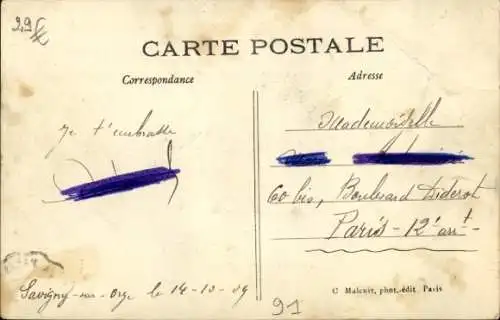 2,9f
CARTE POSTALE
Correspondance
Adresse
Je t'embrasse
Mademoiselle
60 bis, Boulevard Diderot
Paris - 12e arrt
Savigny-sur-Orge le 14-10-09
91
C Malcuit, phot.-édit Paris